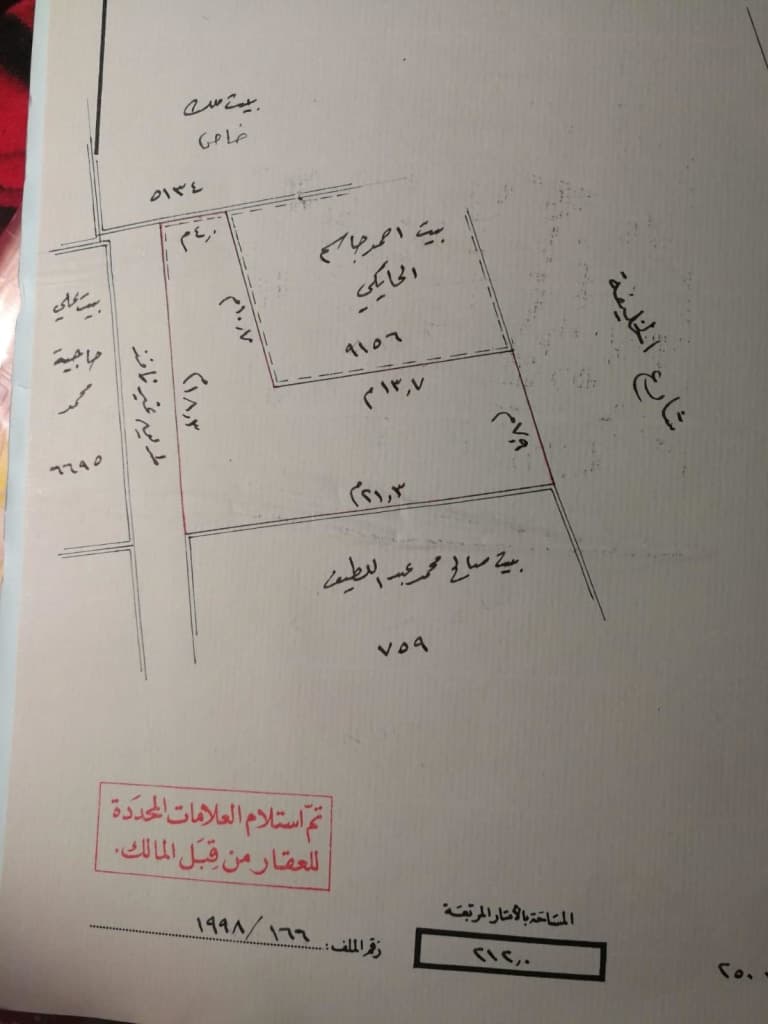 بيت ملك
خاص
٥١٣٤
٤,٠م
بيت احمد جاسم
الحايكي
٩١٥٦
١٠,٧م
١٣,٧م
شارع الخليفة
بيت علي
حاجية
محمد
٩٦٩٥
طريق غير نافذ
١٨,٣م
٧,٩م
٢١,٣م
بيت صالح محمد عبد اللطيف
٧٥٩
تمّ استلام العلامات المحددة
للعقار من قبل المالك.
المساحة بالأمتار المربّعة
٢١٢,٠
رقم الملف: ١٩٩٨/١٦٦
٢٥٠